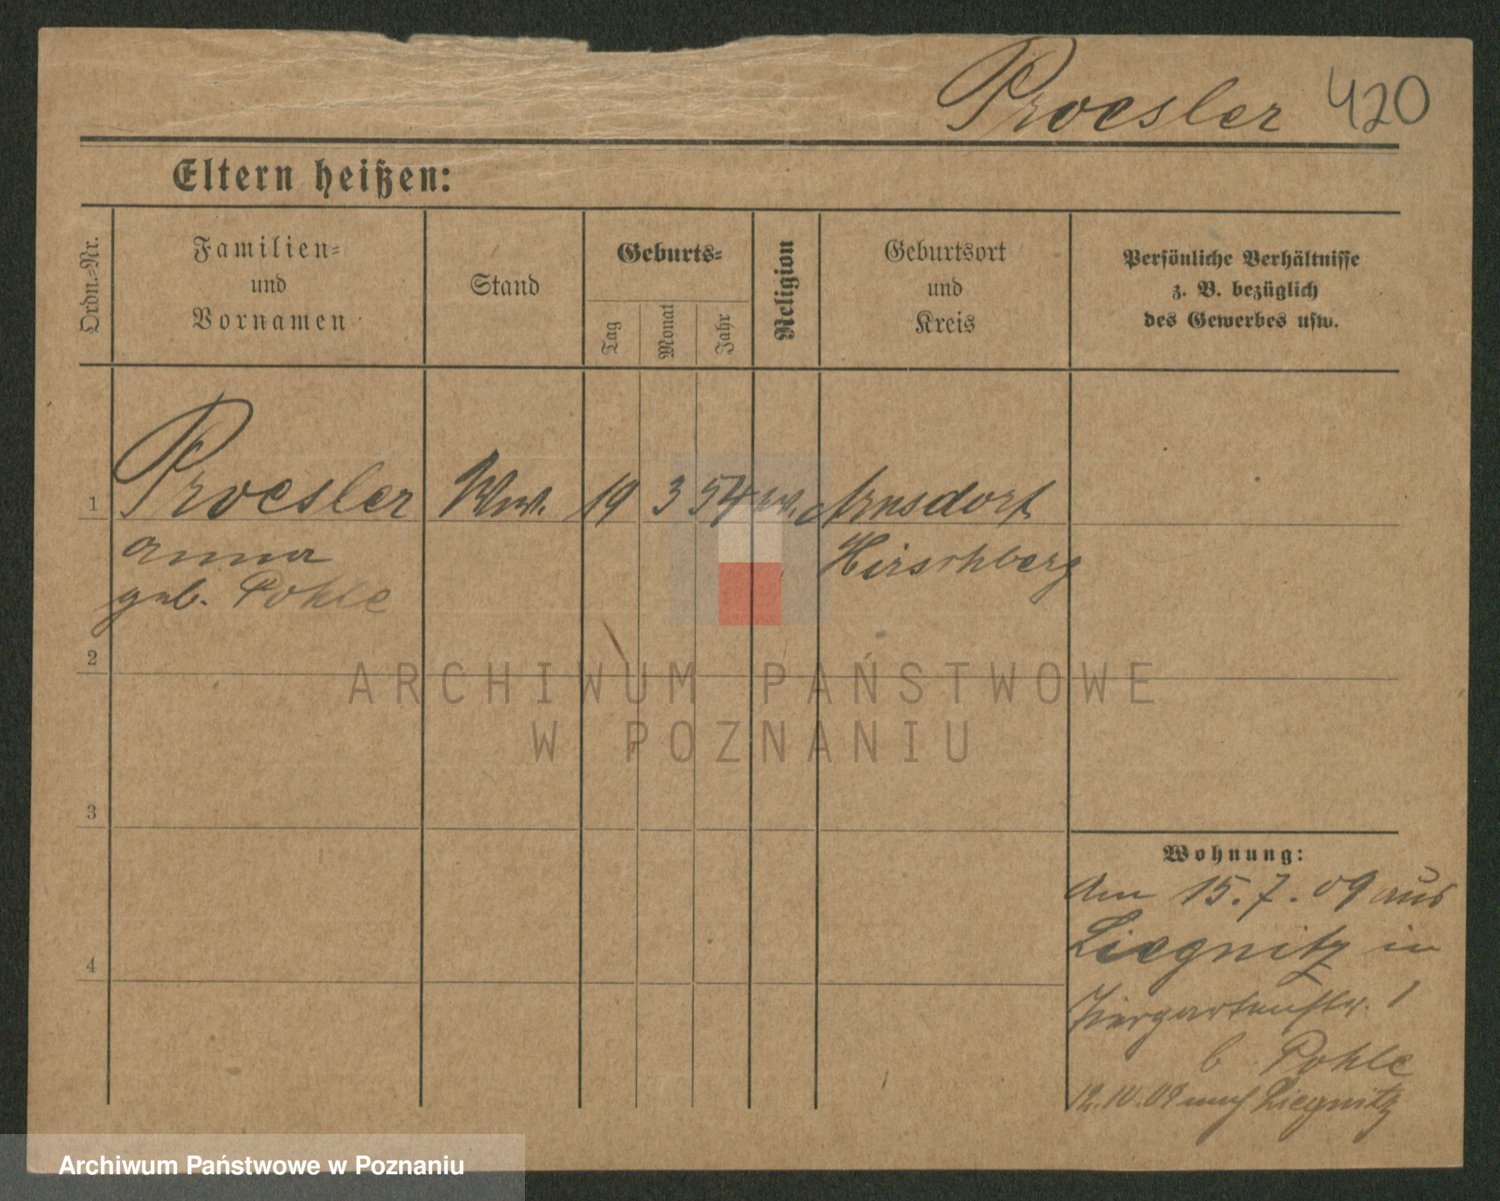 Proesler 420
Eltern heißen:
Ordn.-Nr.
Familien-
und
Vornamen
Stand
Geburts-
Tag
Monat
Jahr
Religion
Geburtsort
und
Kreis
Persönliche Verhältnisse
z. B. bezüglich
des Gewerbes usw.
1 Proesler Ww. 19 3 54 ev. Arnsdorf
Anna Hirschberg
geb. Pohle
2
ARCHIWUM PAŃSTWOWE
W POZNANIU
3
Wohnung:
Am 15.7.09 aus
Liegnitz in
Tiergartenstr. 1
b. Pohle
4
12.10.09 nach Liegnitz
Archiwum Państwowe w Poznaniu